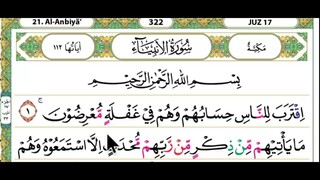 21. Al-Anbiyā' 322 JUZ 17
مَكِّيَّة سُورَةُ الْاَنْبِيَاءِ اٰيَاتُهَا ١١٢
بِسْمِ اللّٰهِ الرَّحْمٰنِ الرَّحِيْمِ
اِقْتَرَبَ لِلنَّاسِ حِسَابُهُمْ وَهُمْ فِيْ غَفْلَةٍ مُّعْرِضُوْنَ ۚ ١
مَا يَأْتِيْهِمْ مِّنْ ذِكْرٍ مِّنْ رَّبِّهِمْ مُّحْدَثٍ اِلَّا اسْتَمَعُوْهُ وَهُمْ